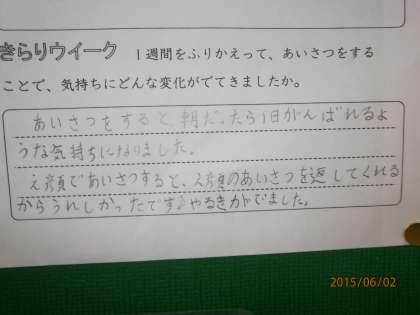 きらりウイーク 1週間をふりかえって、あいさつをする
ことで、気持ちにどんな変化がでてきましたか。
あいさつをすると、朝だったら1日がんばれるよ
うな気持ちになりました。
え顔であいさつすると、え顔のあいさつを返してくれる
からうれしかったです♪やるきがでました。
2015/06/02